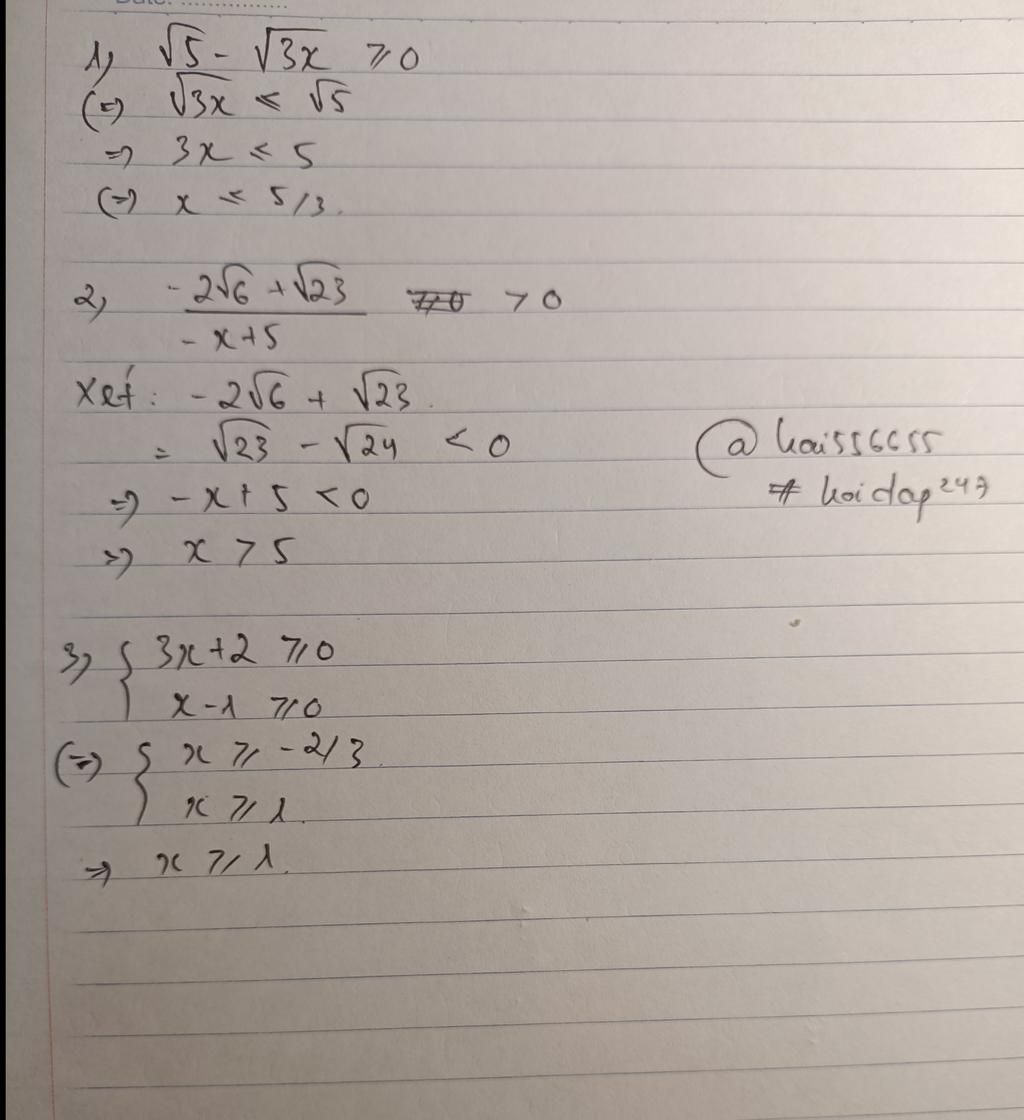 Date: ...............
1, √5 - √3x ≥ 0
(=) √3x ≤ √5
=> 3x ≤ 5
(=) x ≤ 5/3.
2, (-2√6 + √23)/(-x+5) > 0
Xét: -2√6 + √23.
= √23 - √24 < 0
=> -x + 5 < 0
=> x > 5
@hai556655
# hoidap247
3, { 3x+2 ≥ 0
x - 1 ≥ 0
(=) { x ≥ -2/3.
x ≥ 1.
=> x ≥ 1.